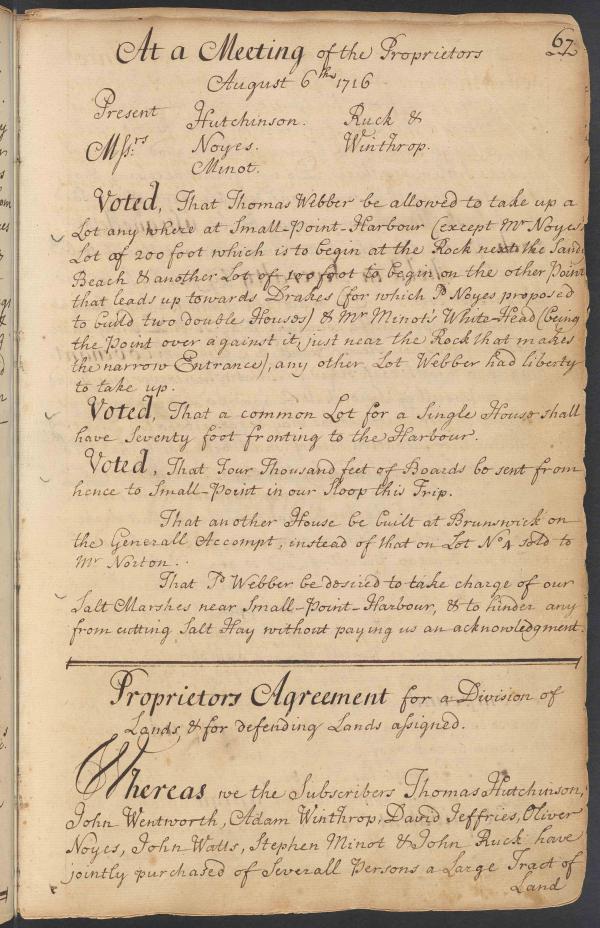 67.
At a Meeting of the Proprietors
August 6th 1716
Present Hutchinson. Ruck &
Mssrs: Noyes. Winthrop.
Minot.
Voted, That Thomas Webber be allowed to take up a
Lot any where at Small-Point-Harbour (except Mr Noyes's
Lot of 200 foot which is to begin at the Rock next the Sandy
Beach & another Lot of 100 foot to begin on the other Point
that leads up towards Drakes (for which Do Noyes proposed
to build two double Houses) & Mr Minot's White-Head (being
the Point over against it, just near the Rock that makes
the narrow Entrance), any other Lot Webber had liberty
to take up.
Voted, That a common Lot for a Single House shall
have Seventy foot fronting to the Harbour.
Voted, That Four Thousand feet of Boards be sent from
hence to Small-Point in our Sloop this Trip.
That another House be built at Brunswick on
the Generall Accompt, instead of that on Lot No 4 sold to
Mr Norton.
That Do Webber be desired to take charge of our
Salt Marshes near Small-Point-Harbour, & to hinder any
from cutting Salt Hay without paying us an acknowledgment.
Proprietors Agreement for a Division of
Lands, & for defending Lands assigned.
Whereas we the Subscribers Thomas Hutchinson,
John Wentworth, Adam Winthrop, David Jeffries, Oliver
Noyes, John Watts, Stephen Minot & John Ruck have
jointly purchased of Severall Persons a Large Tract of
Land